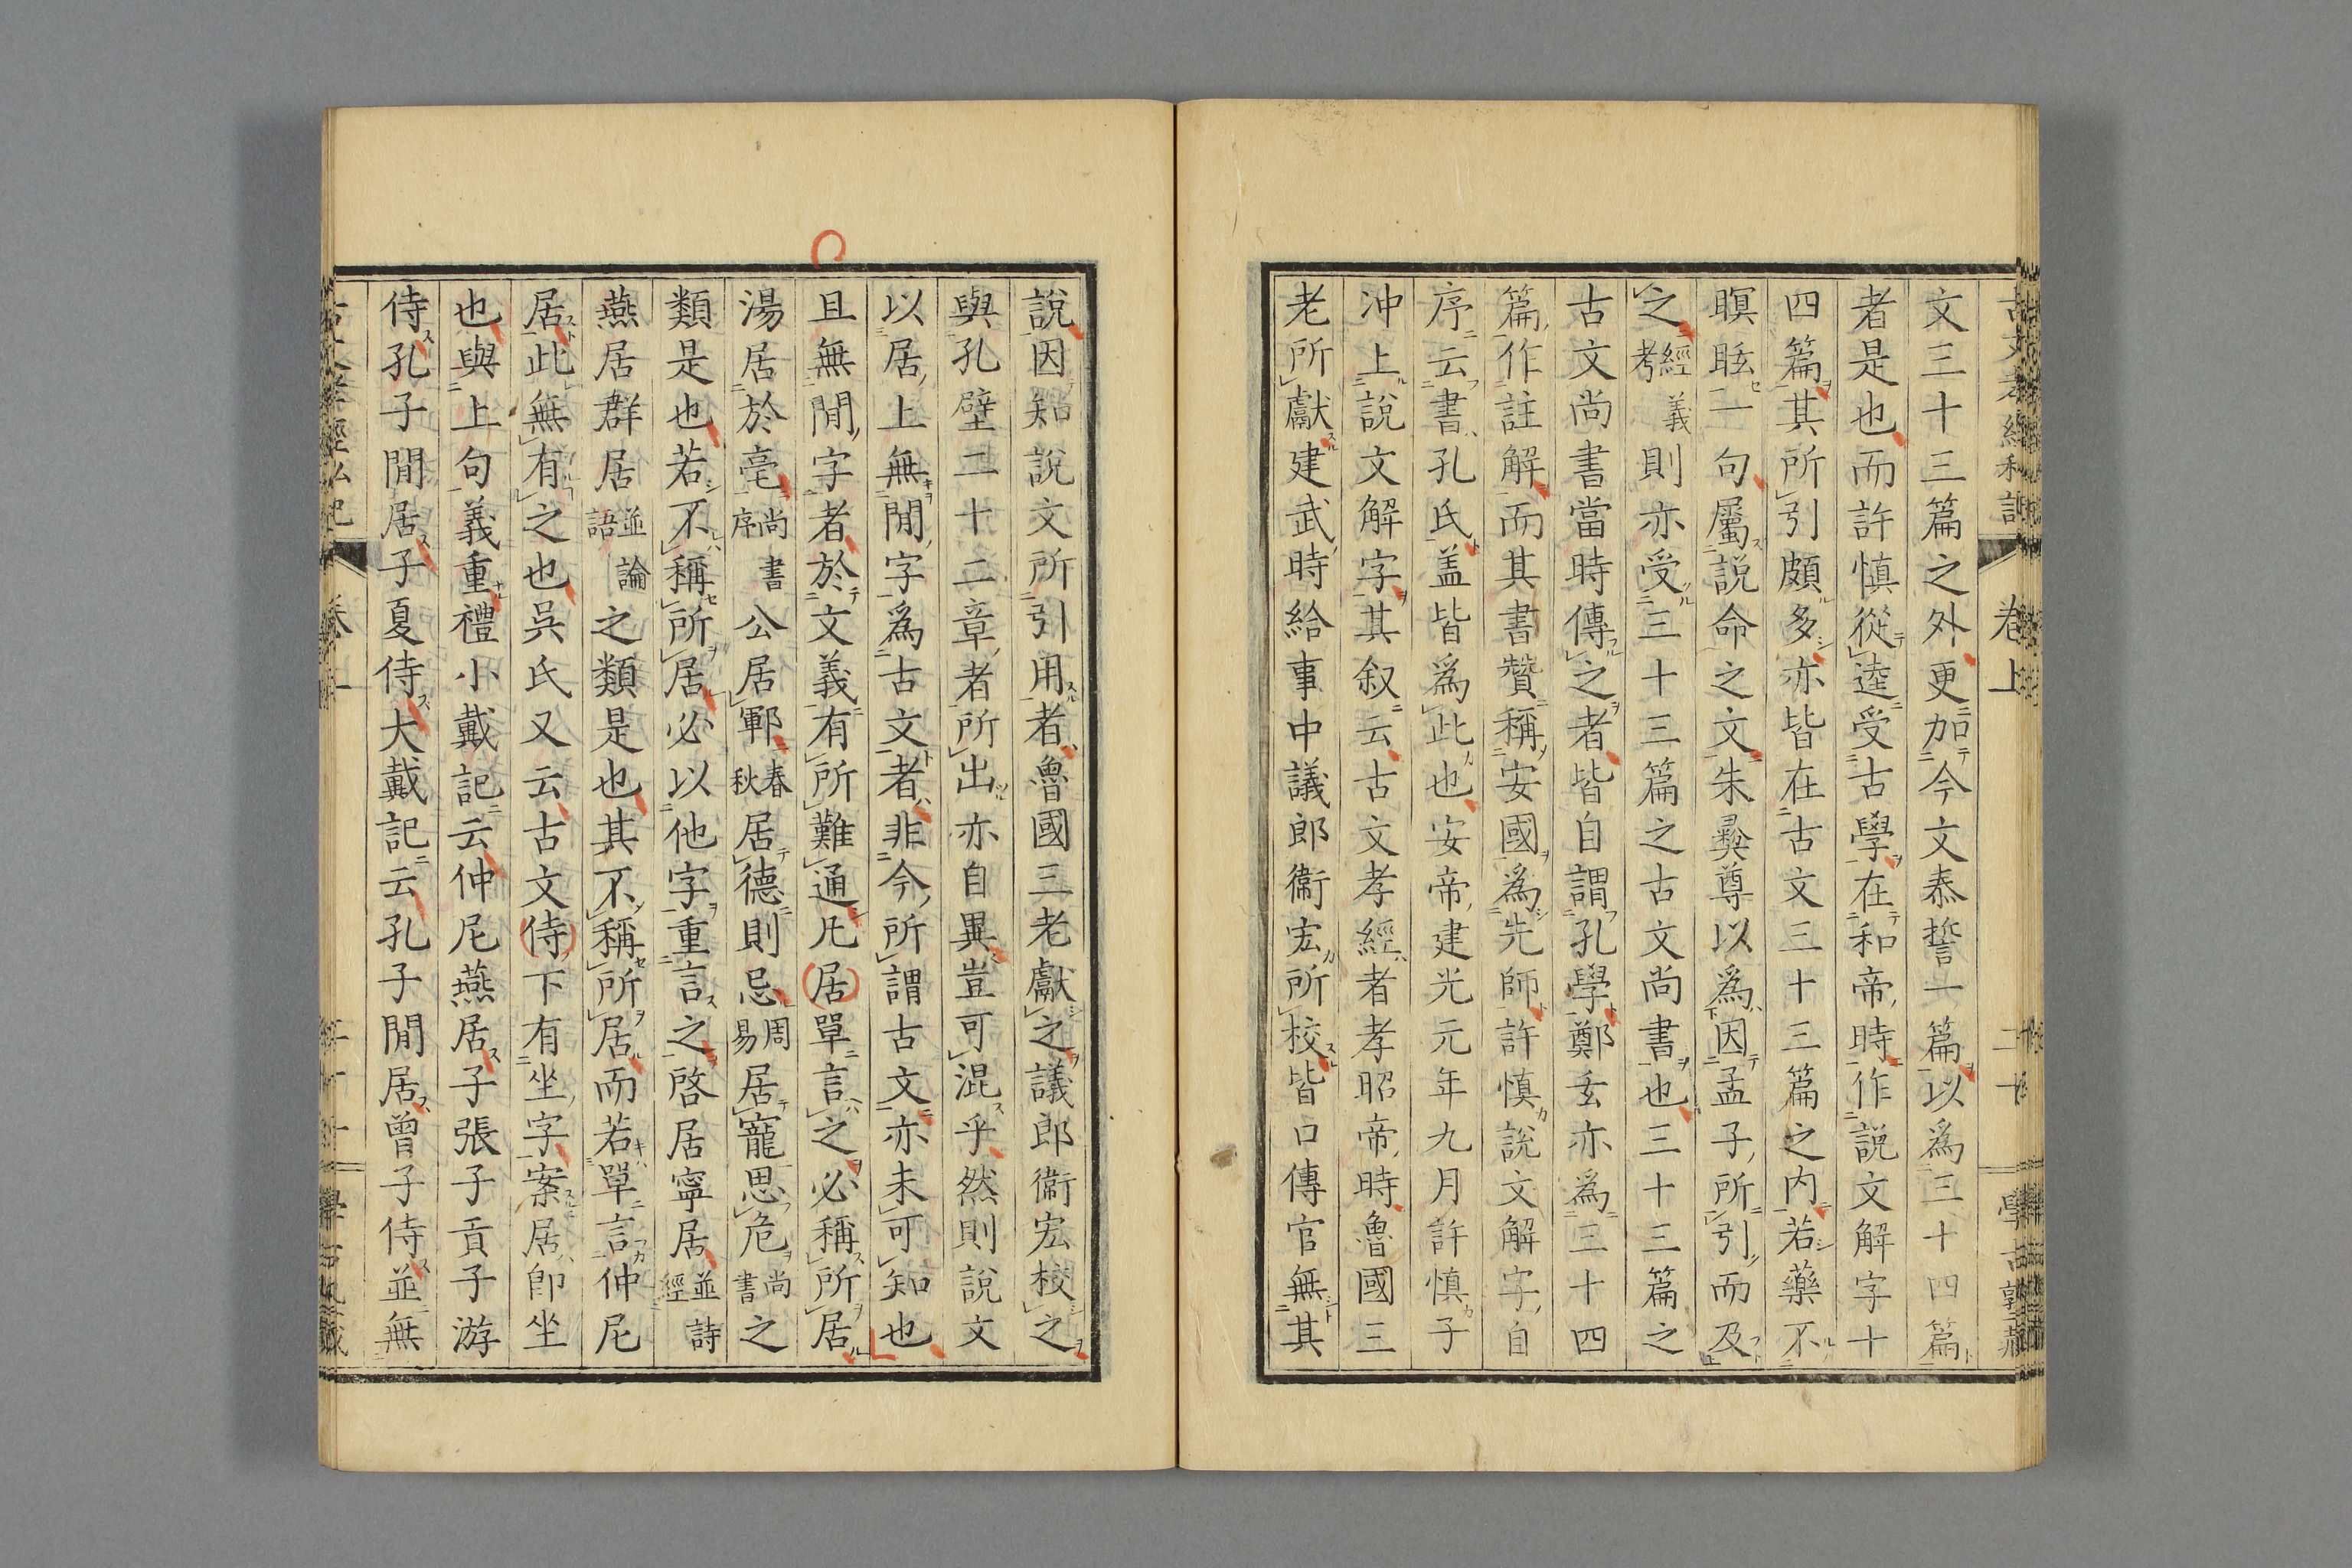 古文孝經私記 卷上 二十 學古塾藏
文三十三篇之外更加今文泰誓一篇以爲三十四篇
者是也而許愼從逵受古學在和帝時作説文解字十
四篇其所引頗多亦皆在古文三十三篇之内若藥不
瞑眩一句屬説命之文朱彞尊以爲因孟子所引而及
之經義考則亦受三十三篇之古文尚書也三十三篇之
古文尚書當時傳之者皆自謂孔學鄭玄亦爲三十四
篇作註解而其書贊稱安國爲先師許慎說文解字自
序云書孔氏盖皆爲此也安帝建光元年九月許慎子
冲上說文解字其叙云古文孝經者孝昭帝時魯國三
老所獻建武時給事中議郎衞宏所校皆口傳官無其
說因知說文所引用者魯國三老獻之議郎衞宏校之
與孔壁二十二章者所出亦自異豈可混乎然則說文
以居上無閒字爲古文者非今所謂古文亦未可知也
且無閒字者於文義有所難通凡居單言之必稱所居
湯居於亳尚書序公居鄆春秋居德則忌周易居寵思危尚書之
類是也若不稱所居必以他字重言之啓居寧居並詩經
燕居群居並論語之類是也其不稱所居而若單言仲尼
居此無有之也吳氏又云古文侍下有坐字案居卽坐
也與上句義重禮小戴記云仲尼燕居子張子貢子游
侍孔子閒居子夏侍大戴記云孔子閒居曾子侍並無